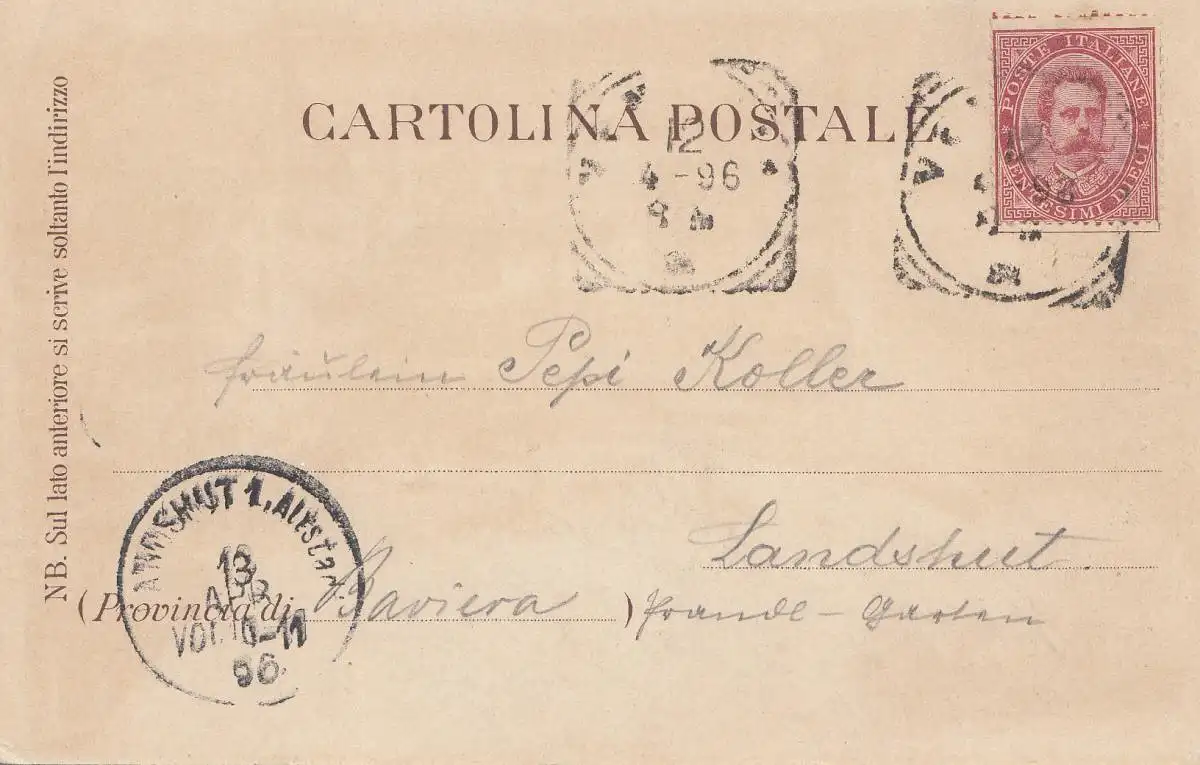 CARTOLINA POSTALE
POSTE ITALIANE
CENTESIMI DIECI
12
4-96
8
NB. Sul lato anteriore si scrive soltanto l'indirizzo
Fräulein Pepi Koller
Landshut
(Provincia di Baviera) Prandl-Garten
LANDSHUT 1, Altstadt
13
APR
VOR. 10-11
96